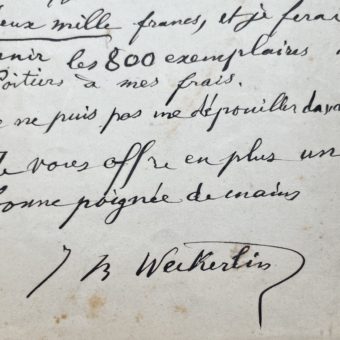 deux mille francs, et je ferai
venir les 800 exemplaires
Poitiers à mes frais.
ne puis pas me dépouiller dava
Je vous offre en plus un
bonne poignée de mains
J B Weckerlin